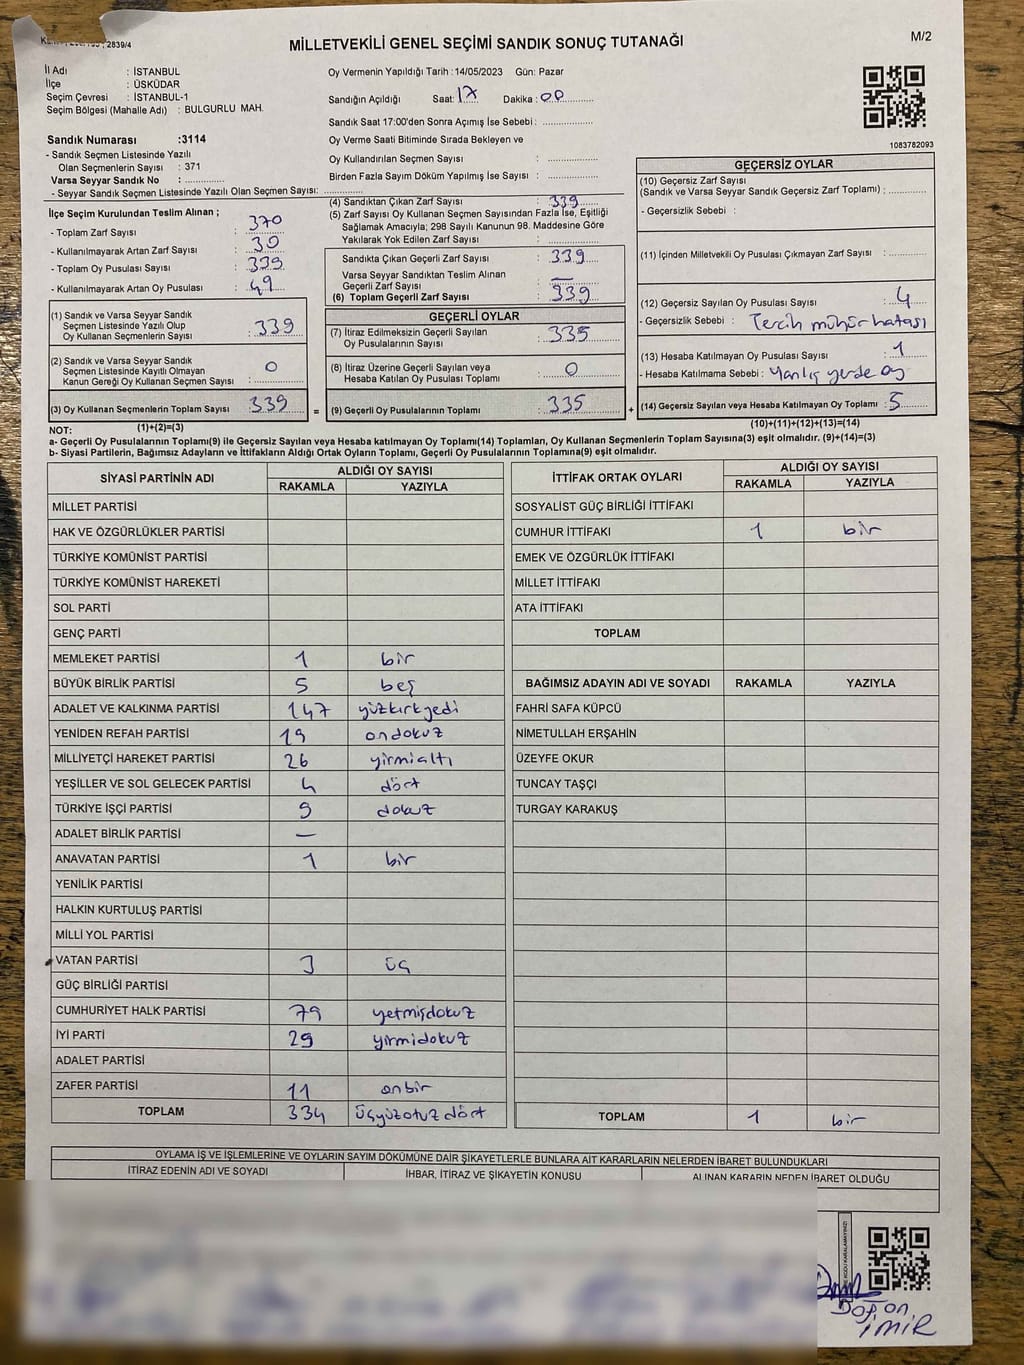 2839/4
MİLLETVEKİLİ GENEL SEÇİMİ SANDIK SONUÇ TUTANAĞI
M/2
İl Adı : İSTANBUL
İlçe : ÜSKÜDAR
Seçim Çevresi : İSTANBUL-1
Seçim Bölgesi (Mahalle Adı) : BULGURLU MAH.
Oy Vermenin Yapıldığı Tarih : 14/05/2023 Gün: Pazar
Sandığın Açıldığı Saat: 17 Dakika : 00
Sandık Saat 17:00'den Sonra Açımış İse Sebebi :
Oy Verme Saati Bitiminde Sırada Bekleyen ve
Oy Kullandırılan Seçmen Sayısı :
Birden Fazla Sayım Döküm Yapılmış İse Sayısı :
1083782093
Sandık Numarası :3114
- Sandık Seçmen Listesinde Yazılı
Olan Seçmenlerin Sayısı : 371
Varsa Seyyar Sandık No :
- Seyyar Sandık Seçmen Listesinde Yazılı Olan Seçmen Sayısı:
İlçe Seçim Kurulundan Teslim Alınan ;
- Toplam Zarf Sayısı : 370
- Kullanılmayarak Artan Zarf Sayısı : 30
- Toplam Oy Pusulası Sayısı : 339
- Kullanılmayarak Artan Oy Pusulası : 49
(1) Sandık ve Varsa Seyyar Sandık
Seçmen Listesinde Yazılı Olup
Oy Kullanan Seçmenlerin Sayısı : 339
(2) Sandık ve Varsa Seyyar Sandık
Seçmen Listesinde Kayıtlı Olmayan
Kanun Gereği Oy Kullanan Seçmen Sayısı : 0
(3) Oy Kullanan Seçmenlerin Toplam Sayısı : 339
(1)+(2)=(3)
(4) Sandıktan Çıkan Zarf Sayısı : 339
(5) Zarf Sayısı Oy Kullanan Seçmen Sayısından Fazla İse, Eşitliği
Sağlamak Amacıyla; 298 Sayılı Kanunun 98. Maddesine Göre
Yakılarak Yok Edilen Zarf Sayısı :
Sandıkta Çıkan Geçerli Zarf Sayısı : 339
Varsa Seyyar Sandıktan Teslim Alınan
Geçerli Zarf Sayısı : —
(6) Toplam Geçerli Zarf Sayısı : 339
GEÇERLİ OYLAR
(7) İtiraz Edilmeksizin Geçerli Sayılan
Oy Pusulalarının Sayısı : 335
(8) İtiraz Üzerine Geçerli Sayılan veya
Hesaba Katılan Oy Pusulası Toplamı : 0
= (9) Geçerli Oy Pusulalarının Toplamı : 335
GEÇERSİZ OYLAR
(10) Geçersiz Zarf Sayısı
(Sandık ve Varsa Seyyar Sandık Geçersiz Zarf Toplamı) :
- Geçersizlik Sebebi :
(11) İçinden Milletvekili Oy Pusulası Çıkmayan Zarf Sayısı :
(12) Geçersiz Sayılan Oy Pusulası Sayısı : 4
- Geçersizlik Sebebi : Tercih mühür hatası
(13) Hesaba Katılmayan Oy Pusulası Sayısı : 1
- Hesaba Katılmama Sebebi : Yanlış yerde oy
+ (14) Geçersiz Sayılan veya Hesaba Katılmayan Oy Toplamı : 5
(10)+(11)+(12)+(13)=(14)
NOT:
a- Geçerli Oy Pusulalarının Toplamı(9) ile Geçersiz Sayılan veya Hesaba katılmayan Oy Toplamı(14) Toplamları, Oy Kullanan Seçmenlerin Toplam Sayısına(3) eşit olmalıdır. (9)+(14)=(3)
b- Siyasi Partilerin, Bağımsız Adayların ve İttifakların Aldığı Ortak Oyların Toplamı, Geçerli Oy Pusulalarının Toplamına(9) eşit olmalıdır.
SİYASİ PARTİNİN ADI ALDIĞI OY SAYISI
RAKAMLA YAZIYLA
MİLLET PARTİSİ
HAK VE ÖZGÜRLÜKLER PARTİSİ
TÜRKİYE KOMÜNİST PARTİSİ
TÜRKİYE KOMÜNİST HAREKETİ
SOL PARTİ
GENÇ PARTİ
MEMLEKET PARTİSİ 1 bir
BÜYÜK BİRLİK PARTİSİ 5 beş
ADALET VE KALKINMA PARTİSİ 147 yüzkırkyedi
YENİDEN REFAH PARTİSİ 19 ondokuz
MİLLİYETÇİ HAREKET PARTİSİ 26 yirmialtı
YEŞİLLER VE SOL GELECEK PARTİSİ 4 dört
TÜRKİYE İŞÇİ PARTİSİ 9 dokuz
ADALET BİRLİK PARTİSİ —
ANAVATAN PARTİSİ 1 bir
YENİLİK PARTİSİ
HALKIN KURTULUŞ PARTİSİ
MİLLİ YOL PARTİSİ
VATAN PARTİSİ 3 üç
GÜÇ BİRLİĞİ PARTİSİ
CUMHURİYET HALK PARTİSİ 79 yetmişdokuz
İYİ PARTİ 29 yirmidokuz
ADALET PARTİSİ
ZAFER PARTİSİ 11 onbir
TOPLAM 334 üçyüzotuz dört
İTTİFAK ORTAK OYLARI ALDIĞI OY SAYISI
RAKAMLA YAZIYLA
SOSYALİST GÜÇ BİRLİĞİ İTTİFAKI
CUMHUR İTTİFAKI 1 bir
EMEK VE ÖZGÜRLÜK İTTİFAKI
MİLLET İTTİFAKI
ATA İTTİFAKI
TOPLAM
BAĞIMSIZ ADAYIN ADI VE SOYADI RAKAMLA YAZIYLA
FAHRİ SAFA KÜPCÜ
NİMETULLAH ERŞAHİN
ÜZEYFE OKUR
TUNCAY TAŞÇI
TURGAY KARAKUŞ
TOPLAM 1 bir
OYLAMA İŞ VE İŞLEMLERİNE VE OYLARIN SAYIM DÖKÜMÜNE DAİR ŞİKAYETLERLE BUNLARA AİT KARARLARIN NELERDEN İBARET BULUNDUKLARI
İTİRAZ EDENİN ADI VE SOYADI İHBAR, İTİRAZ VE ŞİKAYETİN KONUSU ALINAN KARARIN NEDEN İBARET OLDUĞU
İMİR